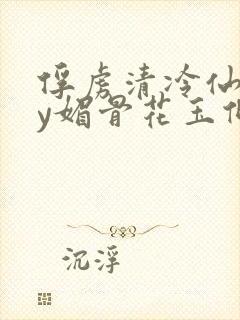 俘虏清冷仙
y媚骨花玉
沉浮